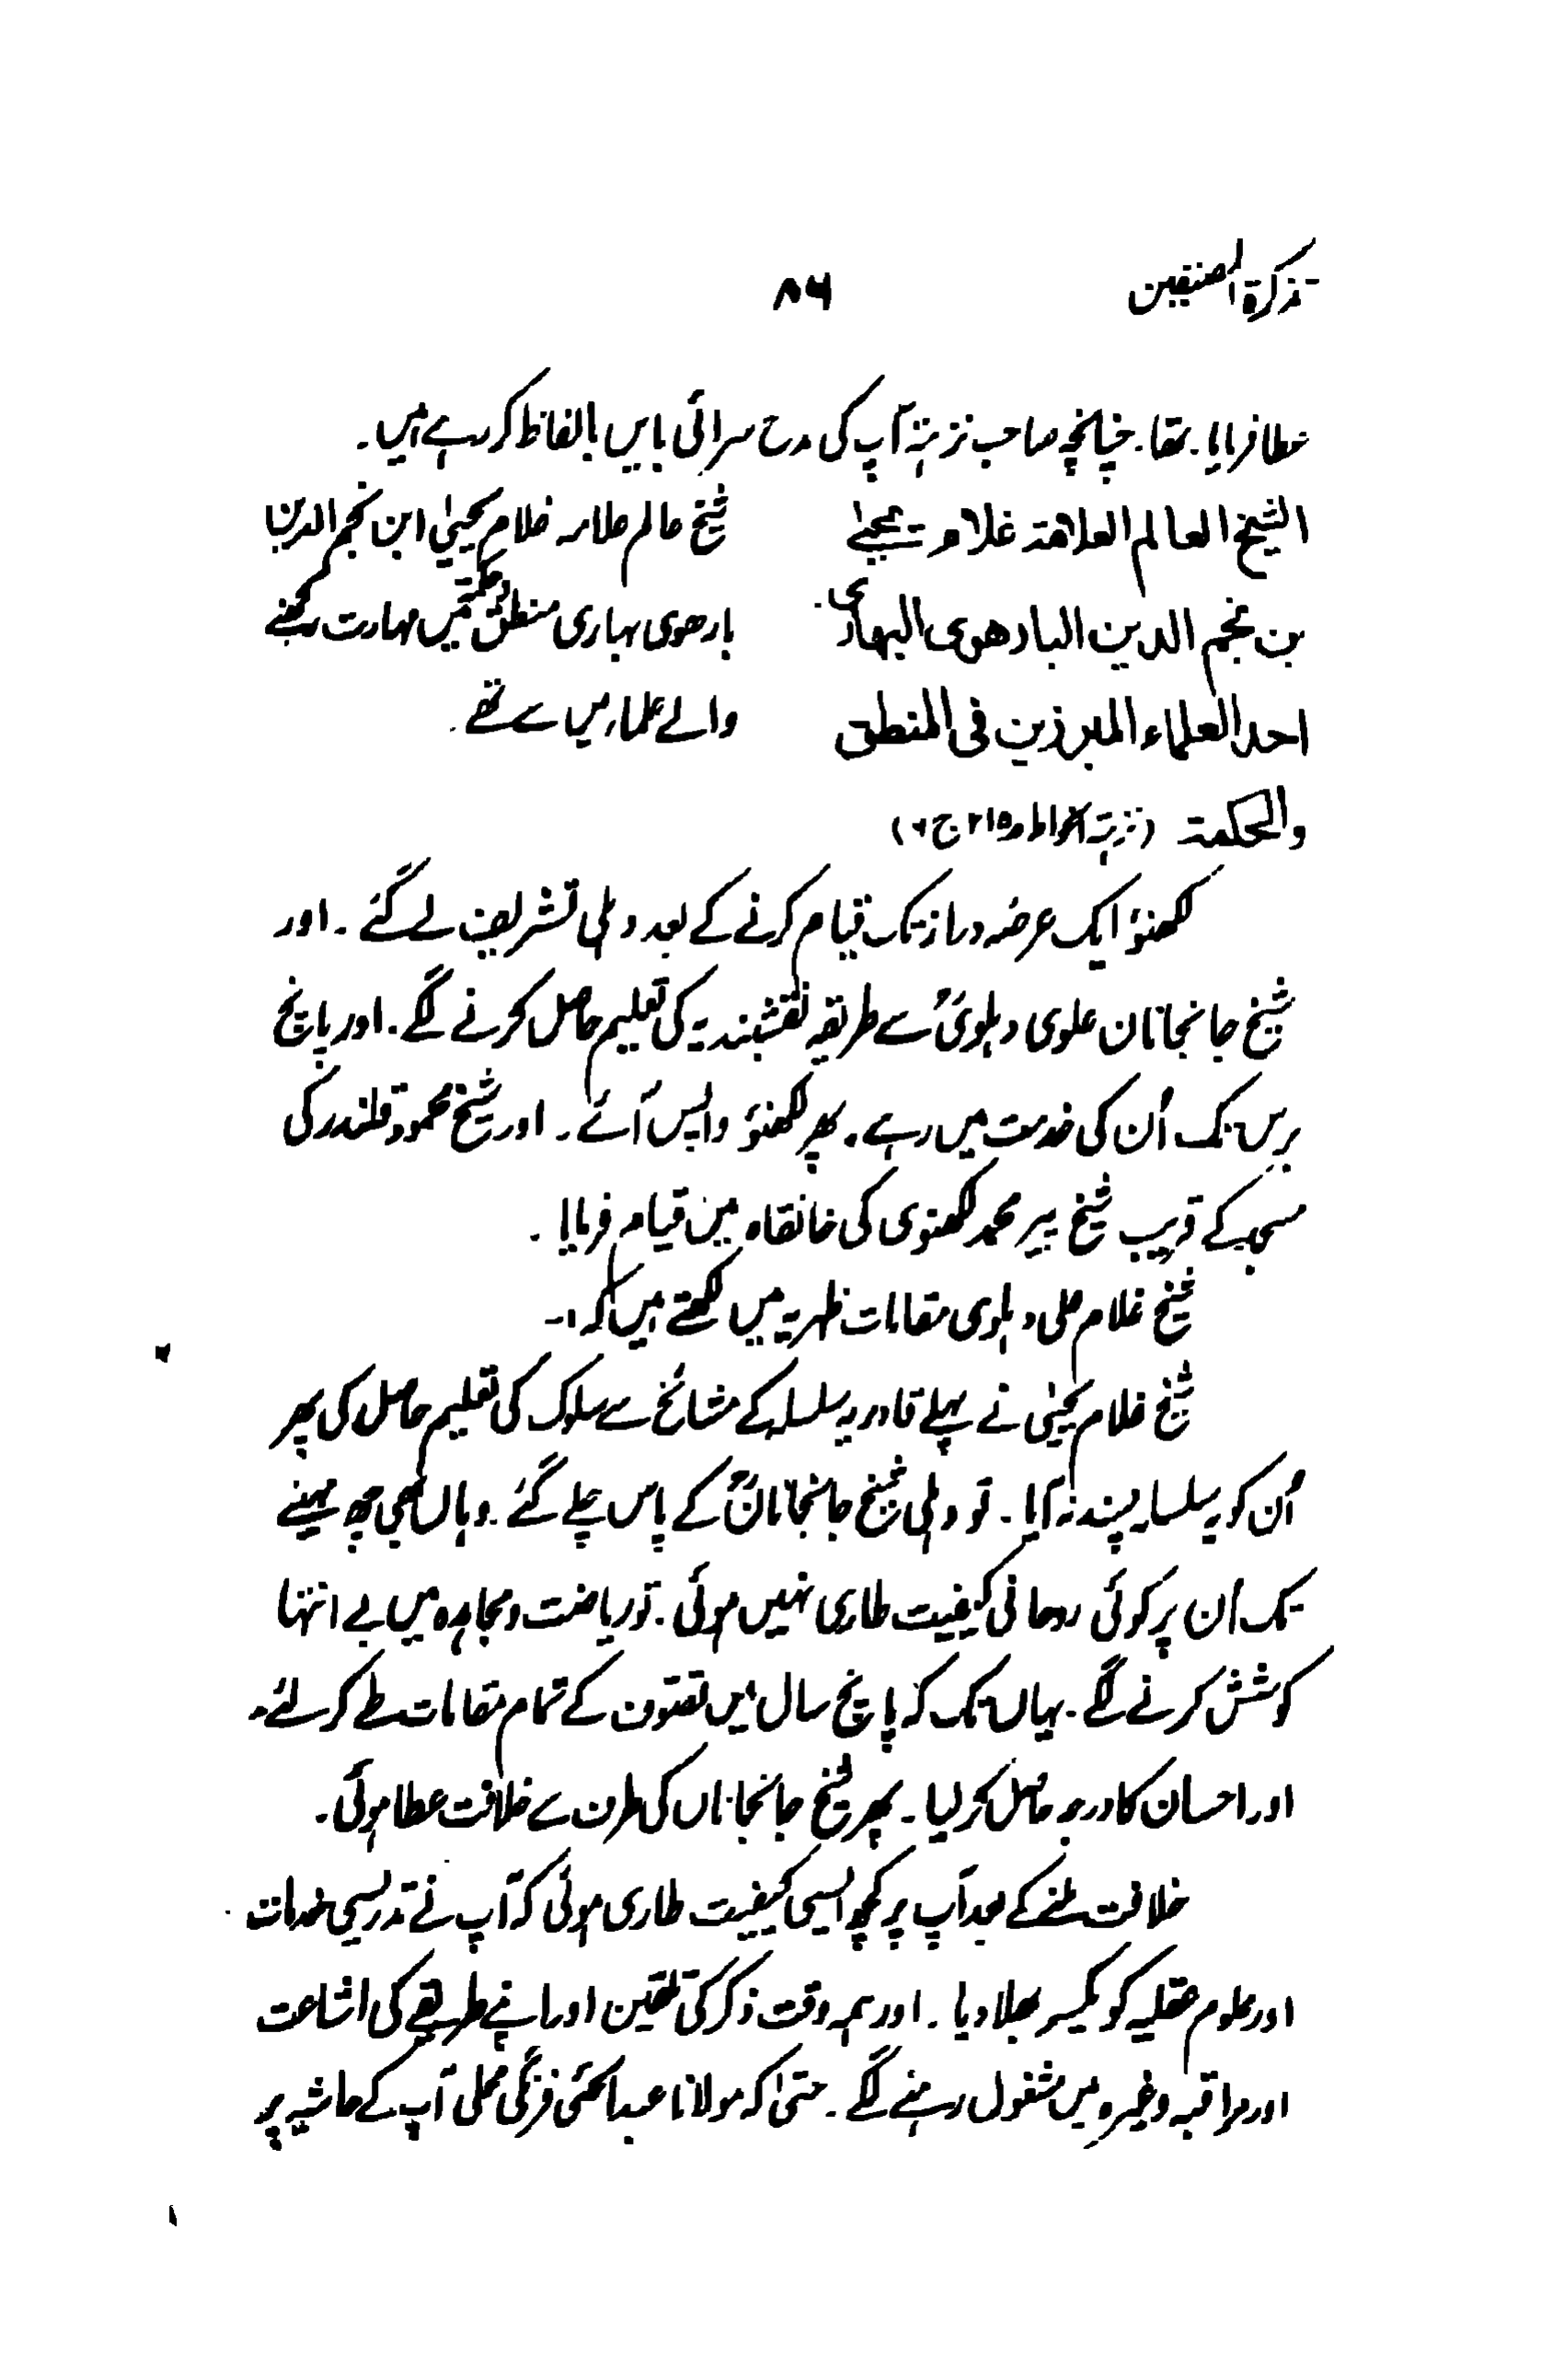 تذکرۃ المصنفین
۸۶
عطا فرمایا تھا۔ چنانچہ صاحب نزہتہ آپ کی مدح سرائی بایں الفاظ کر رہے ہیں۔
الشیخ العالم العلامۃ غلام یحییٰ
بن نجم الدین البارھوی البھاری
احد العلماء المبرزین فی المنطق
والحکمۃ (نزہتہ الخواطر ص۲۱۵ ج۶)
شیخ عالم علامہ غلام یحییٰ ابن نجم الدین
بارھوی بہاری منطق و حکمۃ میں مہارت رکھنے
والے علماء میں سے تھے۔
لکھنؤ ایک عرصہ دراز تک قیام کرنے کے بعد دہلی تشریف لے گئے۔ اور
شیخ جانجانان علوی دہلویؒ سے طریقہ نقشبندیہ کی تعلیم حاصل کرنے لگے۔ اور پانچ
برس تک اُن کی خدمت میں رہے۔ پھر لکھنؤ واپس آئے۔ اور شیخ محمود قلندر کی
مسجد کے قریب شیخ پیر محمد لکھنوی کی خانقاہ میں قیام فرمایا۔
شیخ غلام علی دہلوی مقامات مظہریہ میں لکھتے ہیں کہ :۔
شیخ غلام یحییٰ نے پہلے قادریہ سلسلہ کے مشائخ سے سلوک کی تعلیم حاصل کی پھر
اُن کو یہ سلسلہ پسند نہ آیا۔ تو دہلی شیخ جانجانانؒ کے پاس چلے گئے۔ وہاں بھی چھ مہینے
تک اُن پر کوئی روحانی کیفیت طاری نہیں ہوئی۔ تو ریاضت و مجاہدہ میں بے انتہا
کوشش کرنے لگے۔ یہاں تک کہ پانچ سال میں تصوف کے تمام مقامات طے کر لئے۔
اور احسان کا درجہ حاصل کر لیا۔ پھر شیخ جانجاناں کی طرف سے خلافت عطا ہوئی۔
خلافت ملنے کے بعد آپ پر کچھ ایسی کیفیت طاری ہوئی کہ آپ نے تدریسی خدمات
اور علوم عقلیہ کو یکسر بھلا دیا۔ اور ہمہ وقت ذکر کی تلقین اور اپنے طریقے کی اشاعت
اور مراقبہ وغیرہ میں مشغول رہنے لگے۔ حتیٰ کہ مولانا عبد الحئی فرنگی محلی آپ کے حاشیہ پر